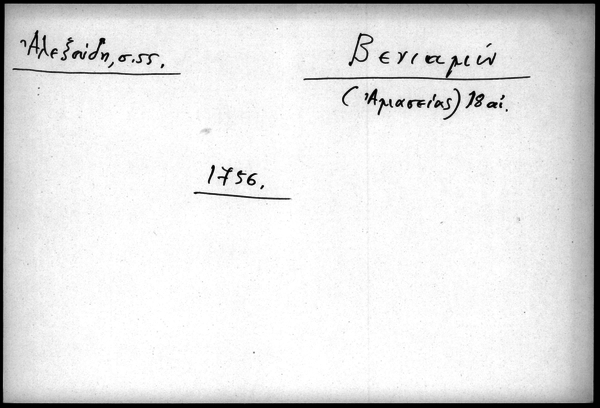 Ἀλεξούδη, σ.55.
Βενιαμίν
(Ἀμασείας) 18 αἰ.
1756.